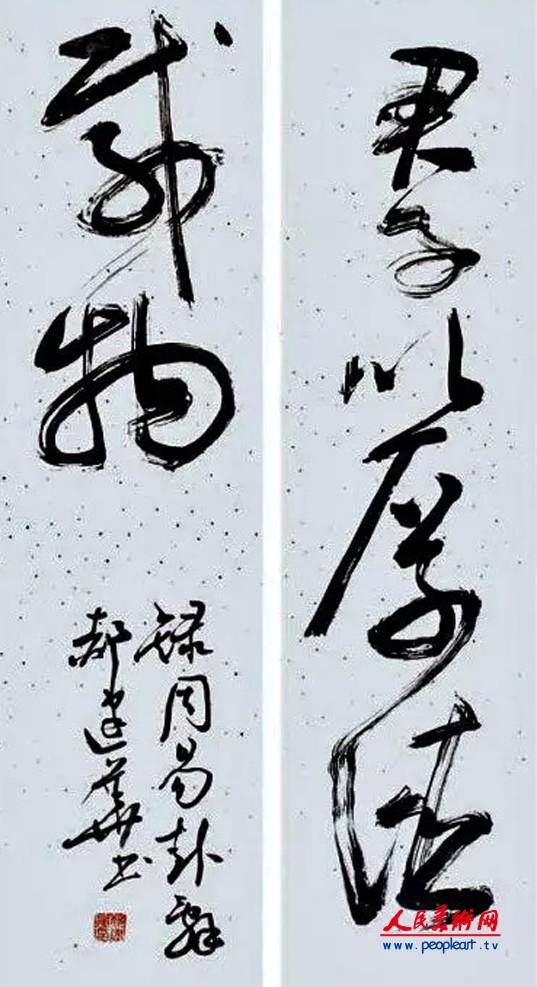 君子以厚德
载物
録周易卦辞
郝建華书
人民美術网
www.peopleart.tv